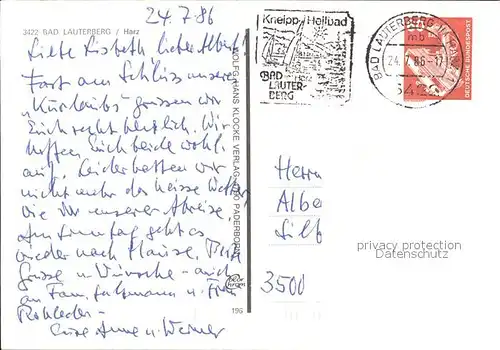 24.7.86
3422 BAD LAUTERBERG / Harz
Liebe Lisbeth lieber Albert!
Fast am Schluss unseres
"Kurlaubs" grüssen wir
Euch recht herzlich. Wir
hoffen Euch beide wohl-
auf. Leider hatten wir
nicht mehr das heisse Wetter
wie vor unserer Abreise.
Am Sonntag geht es
wieder nach Hause. Beste
Grüsse u. Wünsche - auch
an Fam. u. Frau
Rohleder -
Eure Anne u. Werner
WOLFGANG HANS KLOCKE VERLAG PADERBORN
196
Kneipp-Heilbad
BAD
LAUTER-
BERG
BAD LAUTERBERG
mb
24.7.86-17
DEUTSCHE BUNDESPOST
Herrn
Albe
Silf
3500
privacy protection
Datenschutz